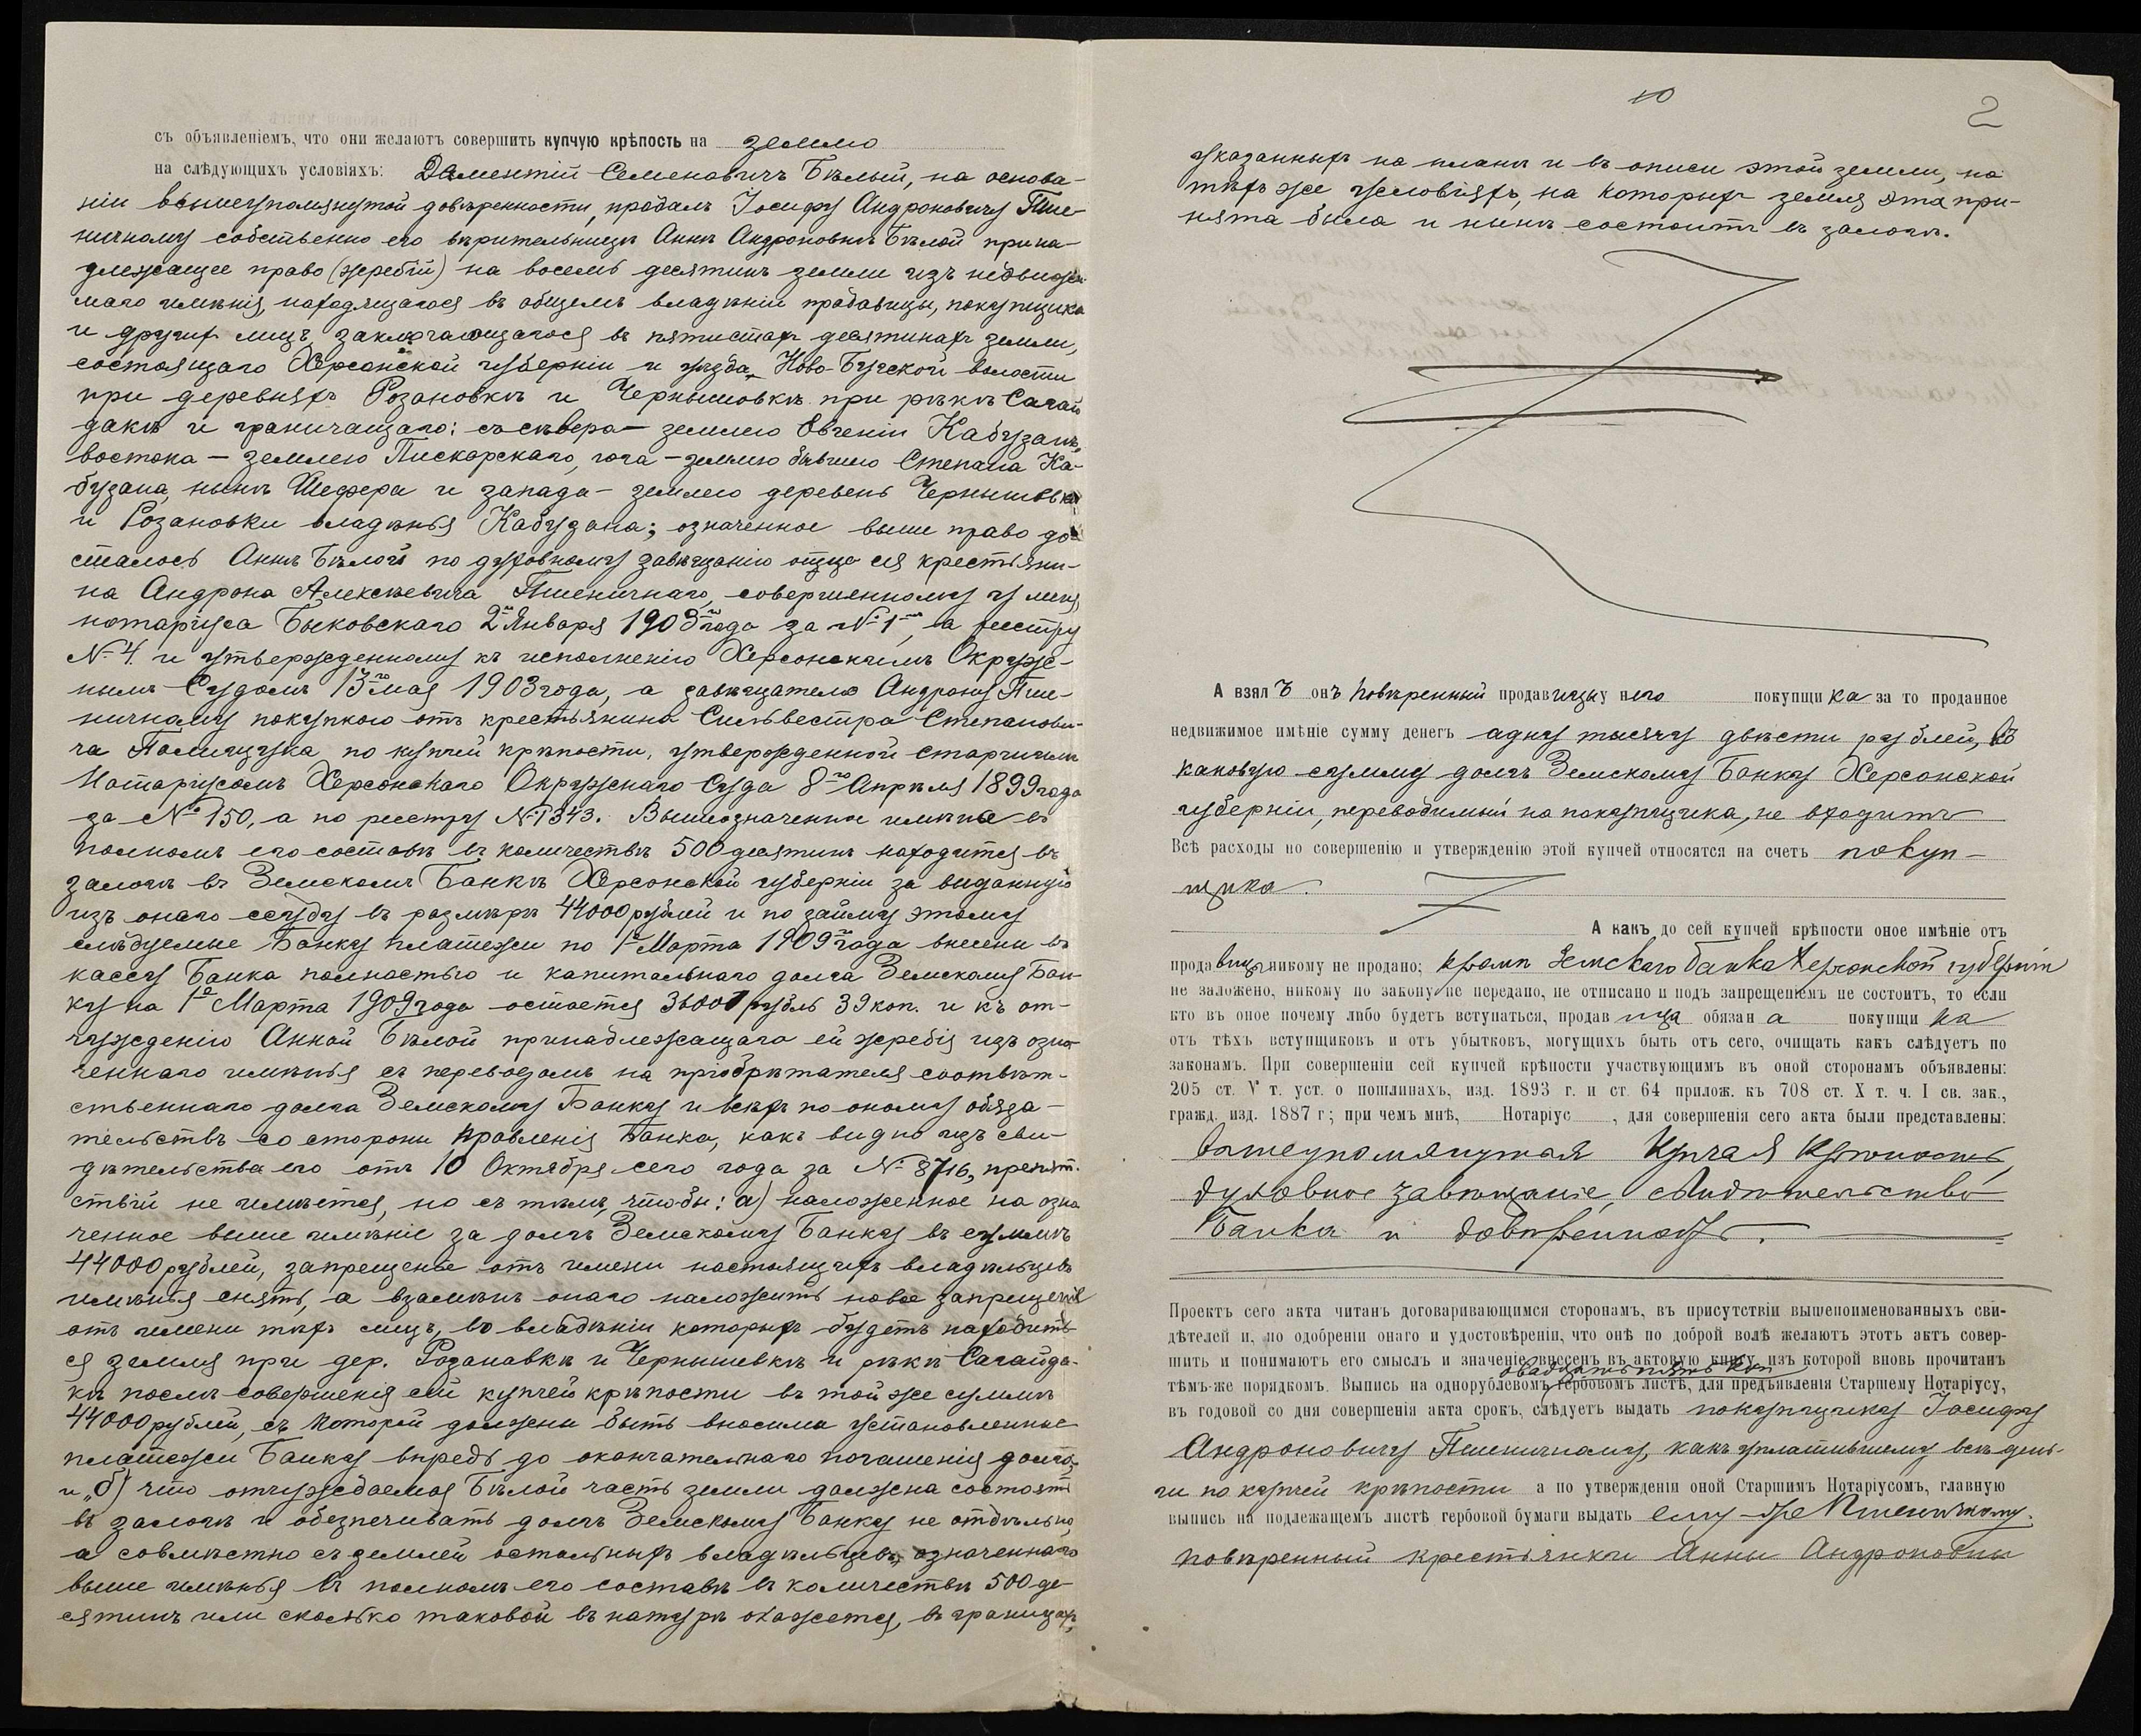 съ объявленіемъ, что они желаютъ совершить купчую крѣпость на землю
на слѣдующихъ условіяхъ: Дементій Семеновичъ Бѣлый, на основа-
ніи вышеупомянутой довѣренности, продалъ Іосифу Андроновичу Пше-
ничному собственно его вѣрительницѣ Аннѣ Андроновнѣ Бѣлой прина-
длежащее право (жребій) на восемь десятинъ земли изъ недвижи-
маго имѣнія, находящагося въ общемъ владѣніи продавицы, покупщика
и другихъ лицъ, заключающагося въ пятистахъ десятинахъ земли,
состоящаго Херсонской губерніи и уѣзда, Ново-Бугской волости
при деревняхъ Розановкѣ и Чернышовкѣ при рѣкѣ Сагай
дакѣ и граничащаго: съ сѣвера – землею Евгеніи Кабузанъ,
востока – землею Пискорскаго, юга – землею бывшею Степана Ка-
бузана, нынѣ Шефера и запада – землею деревень Чернышовки
и Розановки владѣнья Кабузана; означенное выше право до-
сталось Аннѣ Бѣлой по духовному завѣщанію отца ея крестьяни-
на Андрона Алексѣевича Пшеничнаго, совершенному у меня,
нотаріуса Быковскаго 2го Января 1903го года за № 1мъ, а реестру
№ 4. и утвержденному къ исполненію Херсонскимъ Окруж-
нымъ Судомъ 13го мая 1903 года, а завѣщателю Андрону Пше-
ничному покупкою отъ крестьянина Сильвестра Степанови-
ча Палищука по купчей крѣпости, утвержденной старшимъ
Нотаріусомъ Херсонскаго Окружнаго Суда 8го Апрѣля 1899 года
за № 150, а по реестру № 1343. Вышеозначенное имѣніе въ
полномъ его составѣ въ количествѣ 500 десятинъ находится въ
залогѣ въ Земскомъ Банкѣ Херсонской губерніи за выданную
изъ онаго ссуду въ размѣрѣ 44000 рублей и по займу этому
слѣдуемые Банку платежи по 1е Марта 1909го года внесены въ
кассу Банка полностью и капитальнаго долга Земскому Бан-
ку на 1е Марта 1909 года остается рубль 39 коп. и къ от-
чужденію Анной Бѣлой принадлежащаго ей жребія изъ озна-
ченнаго имѣнья съ переводомъ на пріобрѣтателя соотвѣт-
ственнаго долга Земскому Банку и всѣхъ по оному обяза-
тельствъ со стороны Правленія Банка, какъ видно изъ сви-
дѣтельства его отъ 10 Октября сего года за № 8716, препят-
ствій не имѣется, но съ тѣмъ, чтобы: а) наложенное на озна
ченное выше имѣніе за долгъ Земскому Банку въ суммѣ
44000 рублей, запрещенье отъ имени настоящихъ владѣльцевъ
имѣнья снять, а взамѣнъ онаго наложить новое запрещеніе
отъ имени тѣхъ лицъ, во владѣніи которыхъ будетъ находить-
ся земля при дер. Розановкѣ и Чернышевкѣ и рѣкѣ Сагайда-
кѣ послѣ совершенія сей купчей крѣпости въ той же суммѣ
44000 рублей, съ которой должны быть вносимы установленные
платежи Банку впредь до окончательнаго погашенія долга,
и „б) что отчуждаемая Бѣлой часть земли должна состоять
въ залогѣ и обезпечивать долгъ Земскому Банку не отдѣльно,
а совмѣстно съ землей остальныхъ владѣльцевъ означеннаго
выше имѣнья въ полномъ его составѣ въ количествѣ 500 де-
сятинъ или сколько таковой въ натурѣ окажется, въ границахъ,
10
2
указанныхъ на планѣ и въ описи этой земли, на
тѣхъ же условіяхъ, на которыхъ земля эта при-
нята была и нынѣ состоитъ въ залогѣ.
А взялъ онъ повѣренный продавицы у него покупщика за то проданное
недвижимое имѣніе сумму денегъ одну тысячу двѣсти рублей, въ
каковую сумму долгъ Земскому Банку Херсонской
губерніи, переводимый на покупщика, не входитъ
Всѣ расходы по совершенію и утвержденію этой купчей относятся на счетъ покуп-
щика.
А какъ до сей купчей крѣпости оное имѣніе отъ
продавицы никому не продано; кромѣ Земскаго Банка Херсонской губерніи
не заложено, никому по закону не передано, не отписано и подъ запрещеніемъ не состоитъ, то если
кто въ оное почему либо будетъ вступаться, продавица обязана покупщика
отъ тѣхъ вступщиковъ и отъ убытковъ, могущихъ быть отъ сего, очищать какъ слѣдуетъ по
законамъ. При совершеніи сей купчей крѣпости участвующимъ въ оной сторонамъ объявлены:
205 ст. V т. уст. о пошлинахъ, изд. 1893 г. и ст. 64 прилож. къ 708 ст. X т. ч. I св. зак.,
гражд. изд. 1887 г; при чемъ мнѣ, Нотаріус , для совершенія сего акта были представлены:
вышеупомянутая купчая крѣпость,
духовное завѣщаніе, свидѣтельство
Банка и довѣренность.
Проектъ сего акта читанъ договаривающимся сторонамъ, въ присутствіи вышепоименованныхъ сви-
дѣтелей и, по одобреніи онаго и удостовѣреніи, что онѣ по доброй волѣ желаютъ этотъ актъ совер-
шить и понимаютъ его смыслъ и значеніе, внесенъ въ актовую книгу, изъ которой вновь прочитанъ
двадцать пять коп
тѣмъ-же порядкомъ. Выпись на однорублевомъ гербовомъ листѣ, для предъявленія Старшему Нотаріусу,
въ годовой со дня совершенія акта срокъ, слѣдуетъ выдать покупщику Іосифу
Андроновичу Пшеничному, какъ уплатившему всѣ день-
ги по купчей крѣпости а по утвержденіи оной Старшимъ Нотаріусомъ, главную
выпись на подлежащемъ листѣ гербовой бумаги выдать ему-же Пшеничному.
повѣренный крестьянки Анны Андроновны